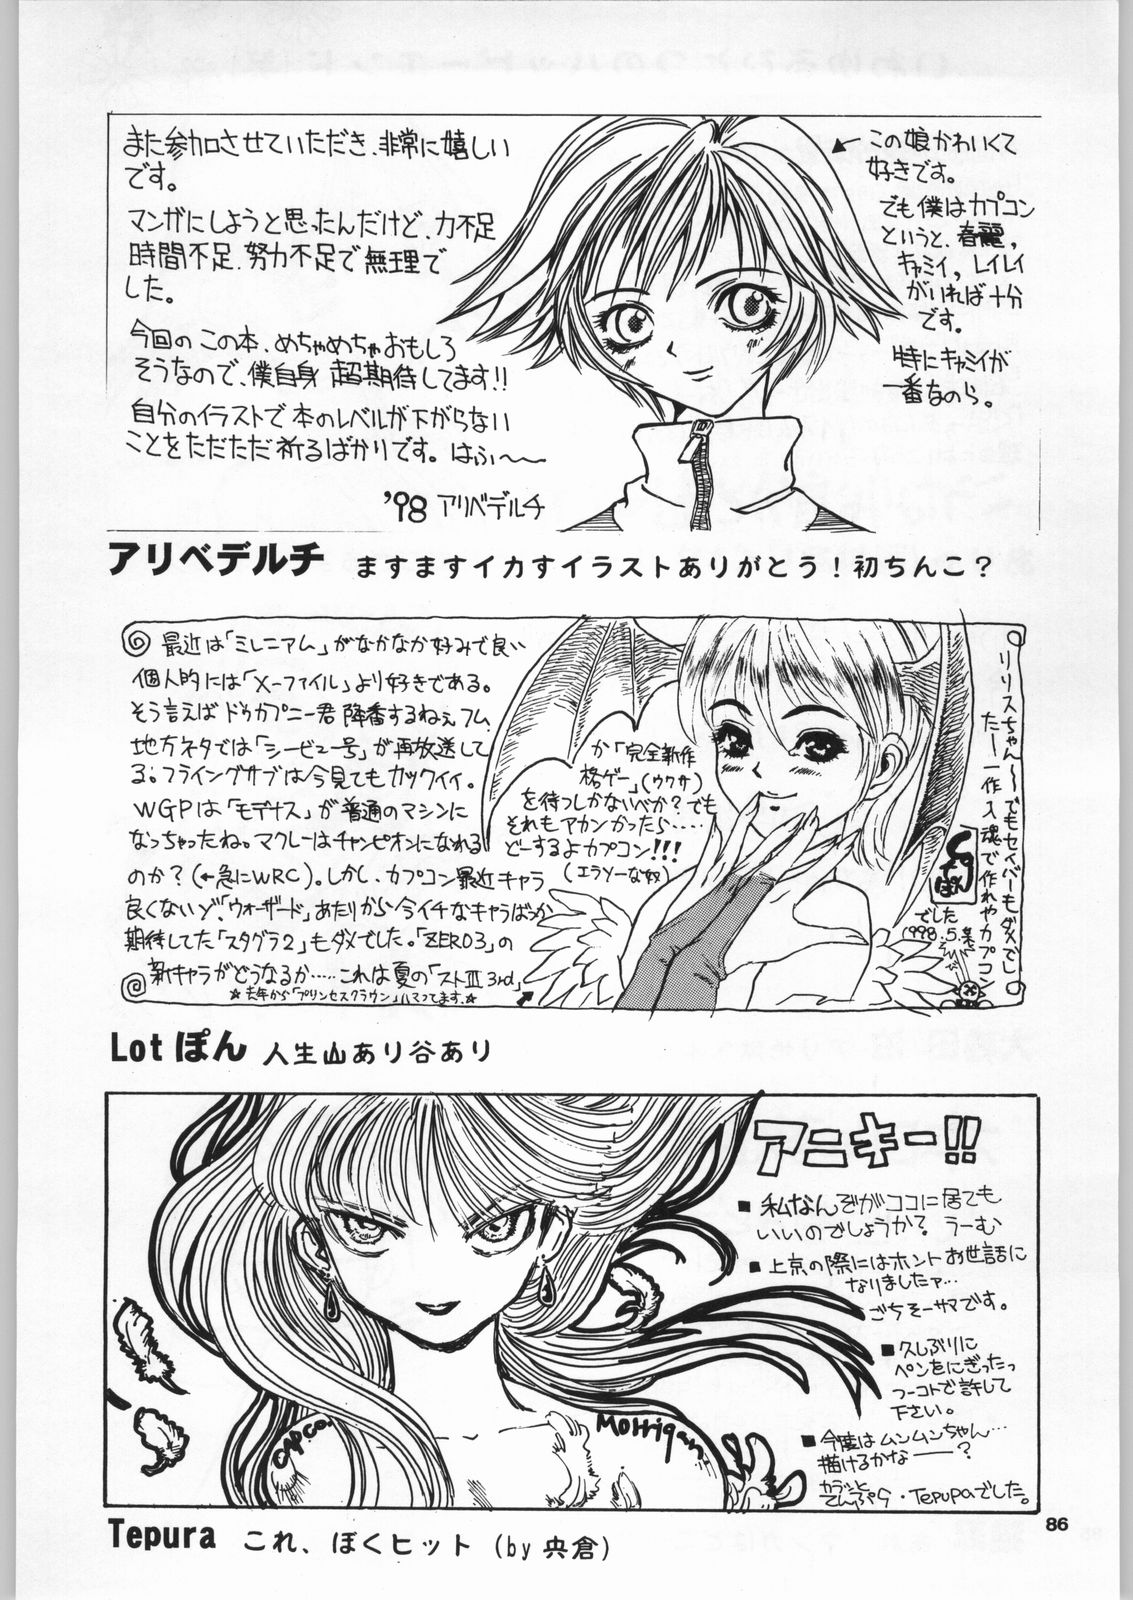 また参加させていただき、非常に嬉しい
です。
マンガにしようと思ったんだけど、力不足
時間不足、努力不足で無理で
した。
今回のこの本、めちゃめちゃおもしろ
そうなので、僕自身 超期待してます!!
自分のイラストで本のレベルが下がらない
ことをただただ祈るばかりです。はふ〜〜
'98 アリベデルチ
この娘かわいくて
好きです。
でも僕はカプコン
というと、春麗,
キャミイ, レイレイ
がいれば十分
です。
特にキャミイが
一番なのら。
アリベデルチ ますますイカすイラストありがとう！初ちんこ？
最近は「ミレニアム」がなかなか好みで良い
個人的には「X-ファイル」より好きである。
そう言えばドゥカプニー君降番するねぇフム
地方ネタでは「シービュー号」が再放送して
る。フライングサブは今見てもカックイイ。
WGPは「モデナス」が普通のマシンに
なっちゃったね。マクレーはチャンピオンになれる
のか？(←急にWRC)。しかし、カプコン最近キャラ
良くないゾ、「ウォーザード」あたりから今イチなキャラばっか
期待してた「スタグラ2」もダメでした。「ZERO3」の
新キャラがどうなるか……これは夏の「ストIII 3rd」
☆去年から「プリンセスクラウン」ハマってます。☆
か「完全新作
格ゲー」(ウワサ)
を待つしかないべか？でも
それもアカンかったら……
どーするよカプコン!!!
(エラソーな奴)
リリスちゃん〜〜でもセイバーもダメでし
たー一作入魂で作れやカプコン
ぽん
でした
1998.5.
Lotぽん 人生山あり谷あり
アニキー!!
■私なんぞがココに居ても
いいのでしょうか？うーむ
■上京の際にはホントお世話に
なりましたァ…
ごちそーサマです。
■久しぶりに
ペンをにぎったっ
つーコトで許して
下さい。
■今度はムンムンちゃん…
描けるかな――？
てんぷら・Tepuraでした。
CAPCO.
Morrigan.
Tepura これ、ぼくヒット (by 央倉)
86